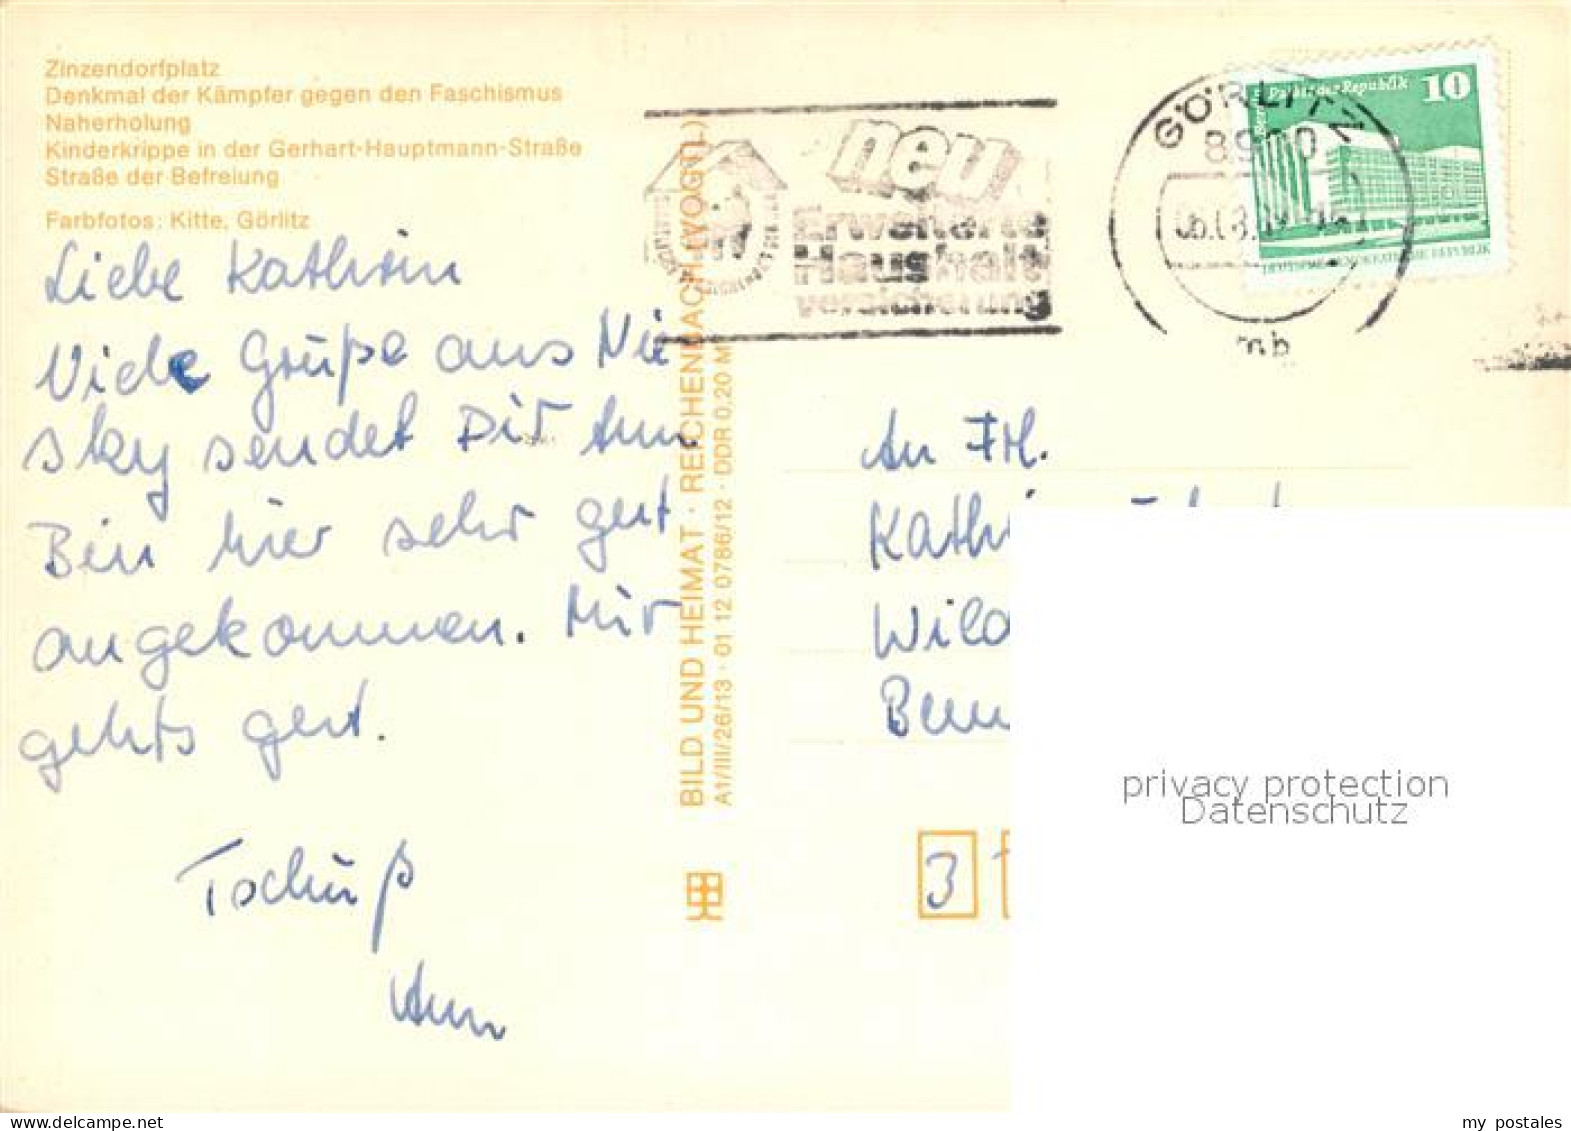 Zinzendorfplatz
Denkmal der Kämpfer gegen den Faschismus
Naherholung
Kinderkrippe in der Gerhart-Hauptmann-Straße
Straße der Befreiung
Farbfotos: Kitte, Görlitz
Liebe Kathrin
Viele Grüße aus Nie
sky sendet Dir Ann
Bin hier sehr gut
angekommen. Mir
gehts gut.
Tschüß
Ann
BILD UND HEIMAT · REICHENBACH (VOGTL)
A1/III/26/13 · 01 12 0786/12 · DDR 0,20 M
neu
Erweiterte
Haushalt
versicherung
GÖRLITZ
8900
mb
Palast der Republik
10
DEUTSCHE DEMOKRATISCHE REPUBLIK
An Frl.
3
privacy protection
Datenschutz
my postales